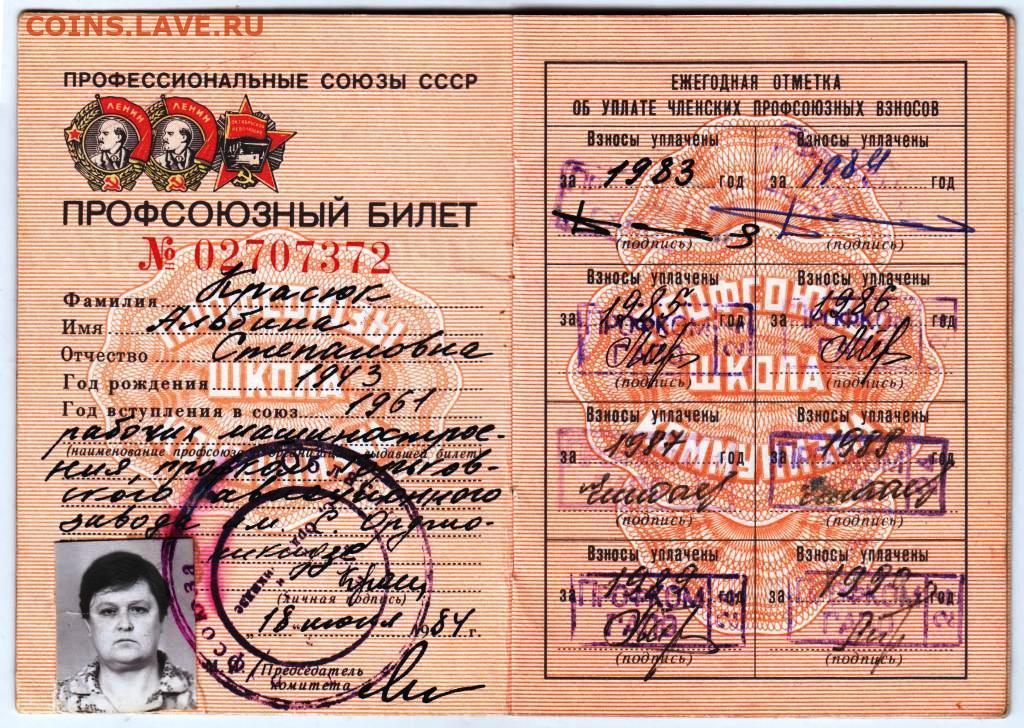 COINS.LAVE.RU
ПРОФЕССИОНАЛЬНЫЕ СОЮЗЫ СССР
ЛЕНИН ЛЕНИН
ОКТЯБРЬСКАЯ РЕВОЛЮЦИЯ
ПРОФСОЮЗНЫЙ БИЛЕТ
№ 02707372
Фамилия Красюк
Имя Альбина
Отчество Степановна
Год рождения 1943
Год вступления в союз 1961
рабочих машинострое-
(наименование профсоюза и организации, выдавшей билет)
ния профком
ского авиационного
завода им. Орджо-
никидзе
(личная подпись)
18 июня 1984 г.
Председатель
комитета
ПРОФСОЮЗЫ
ШКОЛА
ЕЖЕГОДНАЯ ОТМЕТКА
ОБ УПЛАТЕ ЧЛЕНСКИХ ПРОФСОЮЗНЫХ ВЗНОСОВ
Взносы уплачены Взносы уплачены
за 1983 год за 1984 год
(подпись) (подпись)
Взносы уплачены Взносы уплачены
за 1985 год за 1986 год
(подпись) (подпись)
Взносы уплачены Взносы уплачены
за 1987 год за 1988 год
(подпись) (подпись)
Взносы уплачены Взносы уплачены
за 1989 год за 1990 год
ПРОФКОМ
(подпись) (подпись)
ШКОЛА